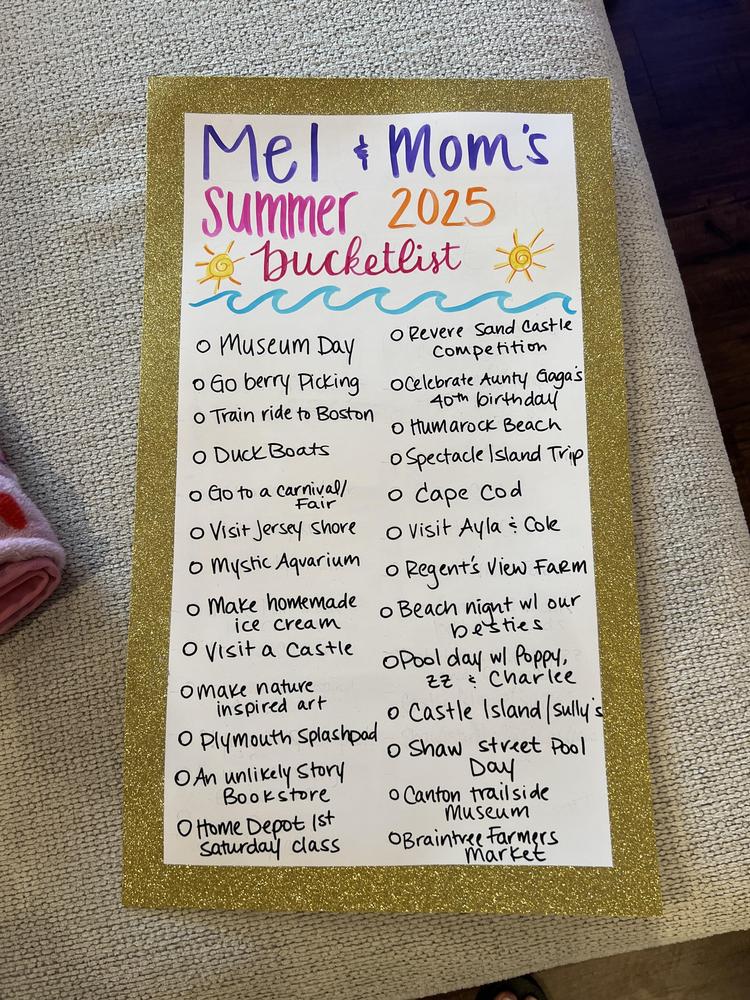 Mel & Mom's
Summer 2025
Bucketlist
O Museum Day
O Go berry Picking
O Train ride to Boston
O Duck Boats
O Go to a carnival/
Fair
O Visit Jersey Shore
O Mystic Aquarium
O Make homemade
ice cream
O Visit a Castle
O make nature
inspired art
O Plymouth Splashpad
O An unlikely Story
Bookstore
O Home Depot 1st
Saturday class
O Revere Sand Castle
Competition
O Celebrate Aunty Gaga's
40th birthday
O Humarock Beach
O Spectacle Island Trip
O Cape Cod
O Visit Ayla & Cole
O Regent's View Farm
O Beach night w/ our
besties
O Pool day w/ Poppy,
ZZ & Charlee
O Castle Island/Sully's
O Shaw street Pool
Day
O Canton trailside
Museum
O Braintree Farmers
Market